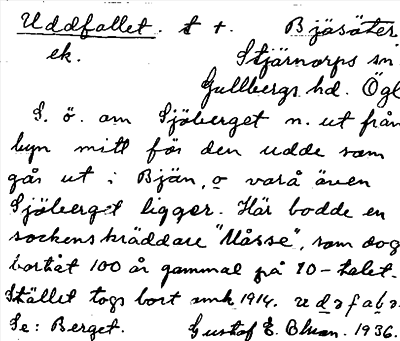 Uddfallet. t +. Bjäsäter
ek. Stjärnorps sn
Gullbergs hd. Ögl
S. ö. om Sjöberget n. ut från
byn mitt för den udde som
går ut i Bjän, o varå även
Sjöberget ligger. Här bodde en
sockenskräddare "Måsse", som dog
bortåt 100 år gammal på 10-talet.
Stället togs bort omk 1914.
Se: Berget. Gustaf E. 1936.